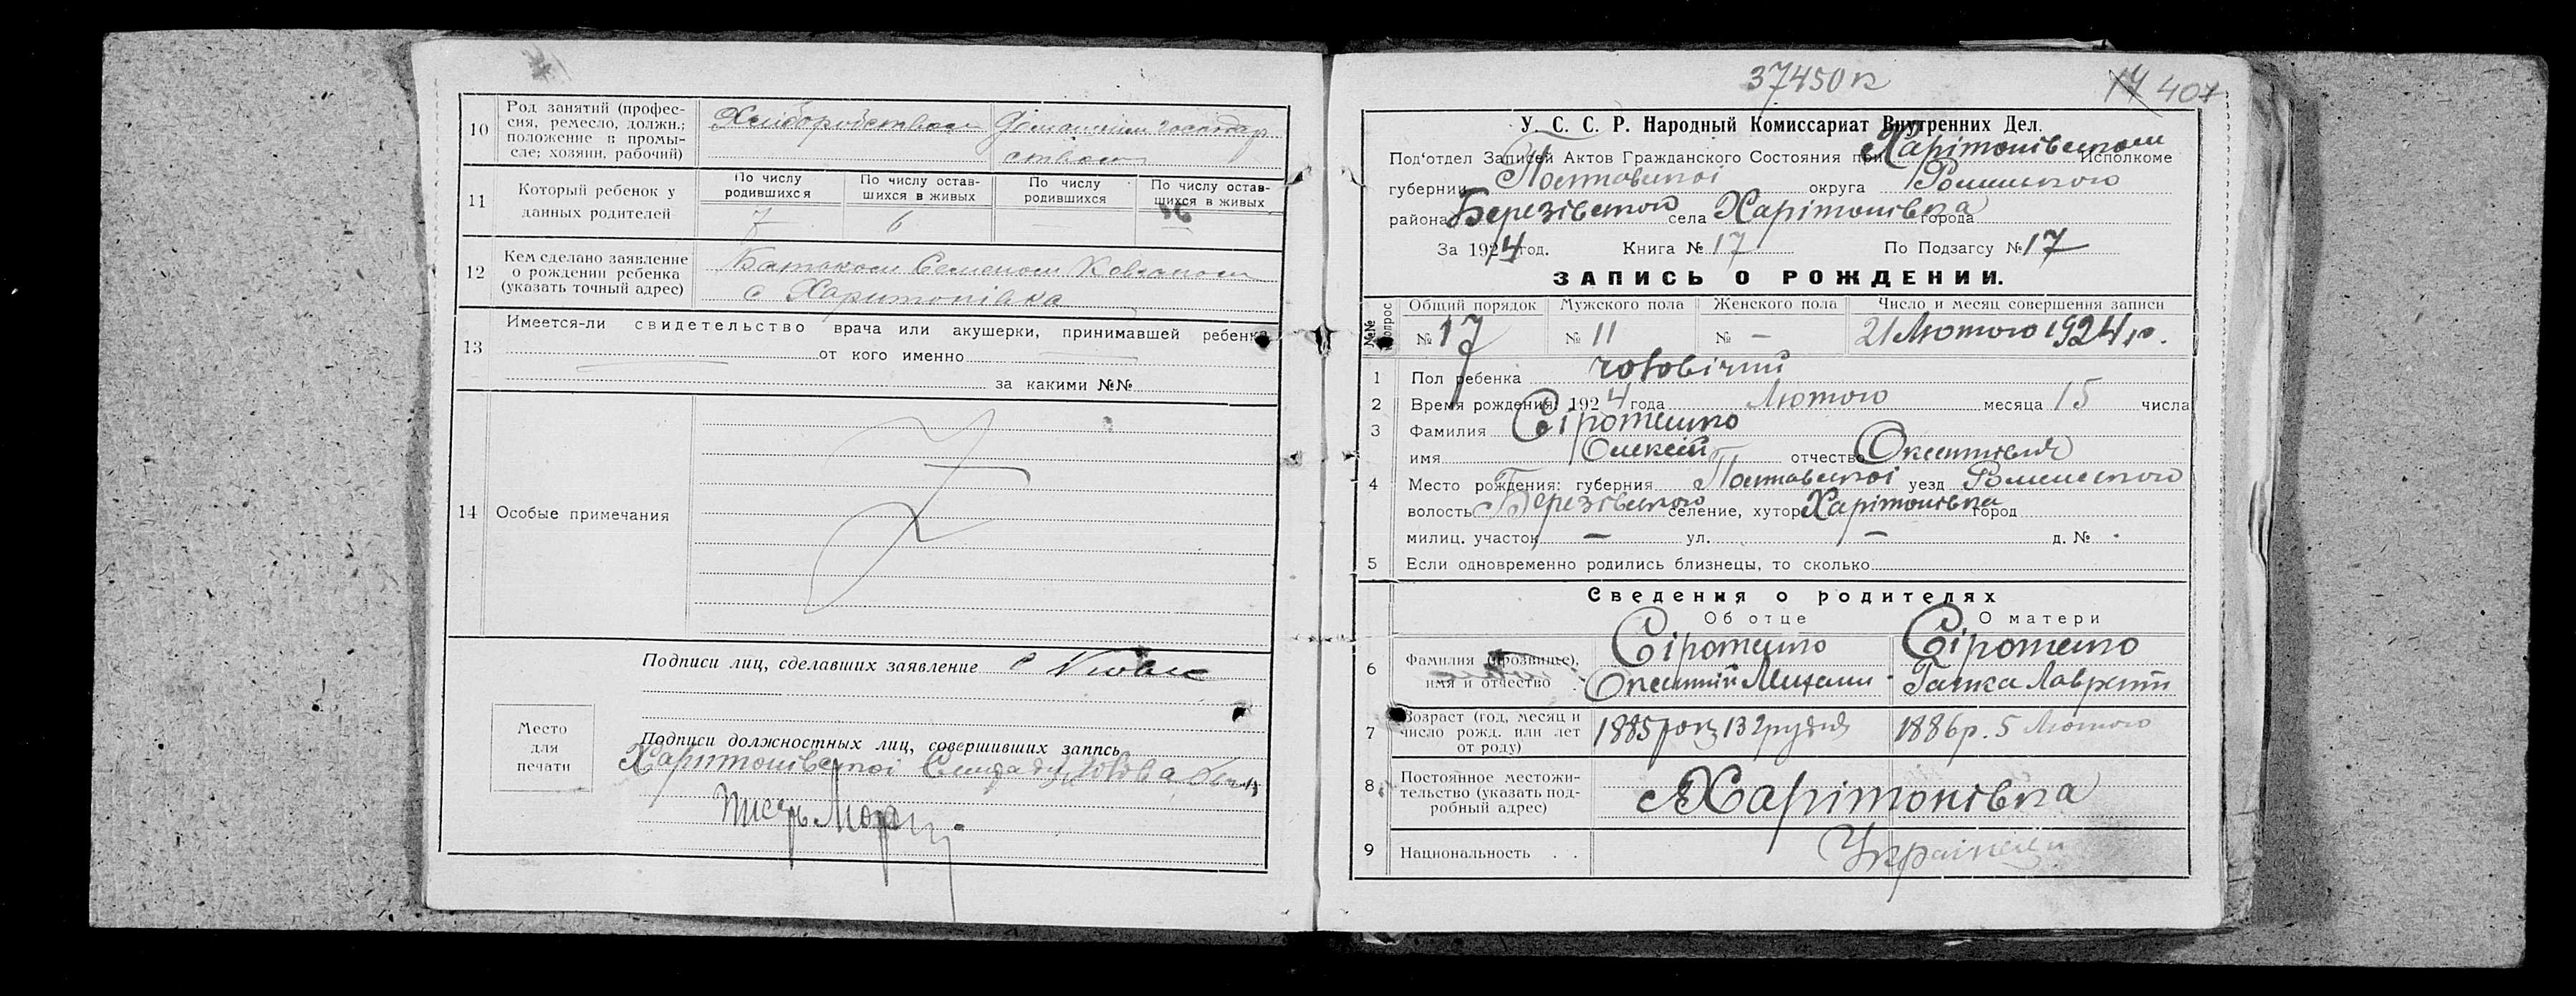 10 Род занятий (профес-
сия, ремесло, должн.;
положение в промы-
сле; хозяин, рабочий)
Хліборобством
Домашним господар
ством
11 Который ребенок у
данных родителей
По числу
родившихся
По числу остав-
шихся в живых
По числу
родившихся
По числу остав-
шихся в живых
7 6
12 Кем сделано заявление
о рождении ребенка
(указать точный адрес)
Батьком Семеном
с Харитонівка
13 Имеется-ли свидетельство врача или акушерки, принимавшей ребенка
от кого именно
за какими №№
14 Особые примечания
Подписи лиц, сделавших заявление
Место
для
печати
Подписи должностных лиц, совершивших запись
Харітонівської
37450
14 407
У. С. С. Р. Народный Комиссариат Внутренних Дел.
Под'отдел Записей Актов Гражданского Состояния при Харітонівском Исполкоме
губернии Полтавської округа Роменського
района Березівского села Харітонівка города
За 1924 год. Книга № 17 По Подзагсу № 17
ЗАПИСЬ О РОЖДЕНИИ.
№№ вопрос
Общий порядок Мужского пола Женского пола Число и месяц совершения записи
№ 17 № 11 № — 21 Лютого 1924 р.
1 Пол ребенка чоловічий
2 Время рождения: 1924 года Лютого месяца 15 числа
3 Фамилия Сіротенко
имя Олексій отчество
4 Место рождения: губерния Полтавської уезд Роменського
волость Березівського селение, хутор Харітонівка город
милиц. участок — ул. — д. №
5 Если одновременно родились близнецы, то сколько
Сведения о родителях
Об отце О матери
6 Фамилия (прозвище),
имя и отчество
Сіротенко
Сіротенко
Галка Лавренті
7 Возраст (год, месяц и
число рожд. или лет
от роду)
1885 року 13 грудня
1886 р. 5 Лютого
8 Постоянное местожи-
тельство (указать под-
робный адрес)
с Харітонівка
9 Национальность . .